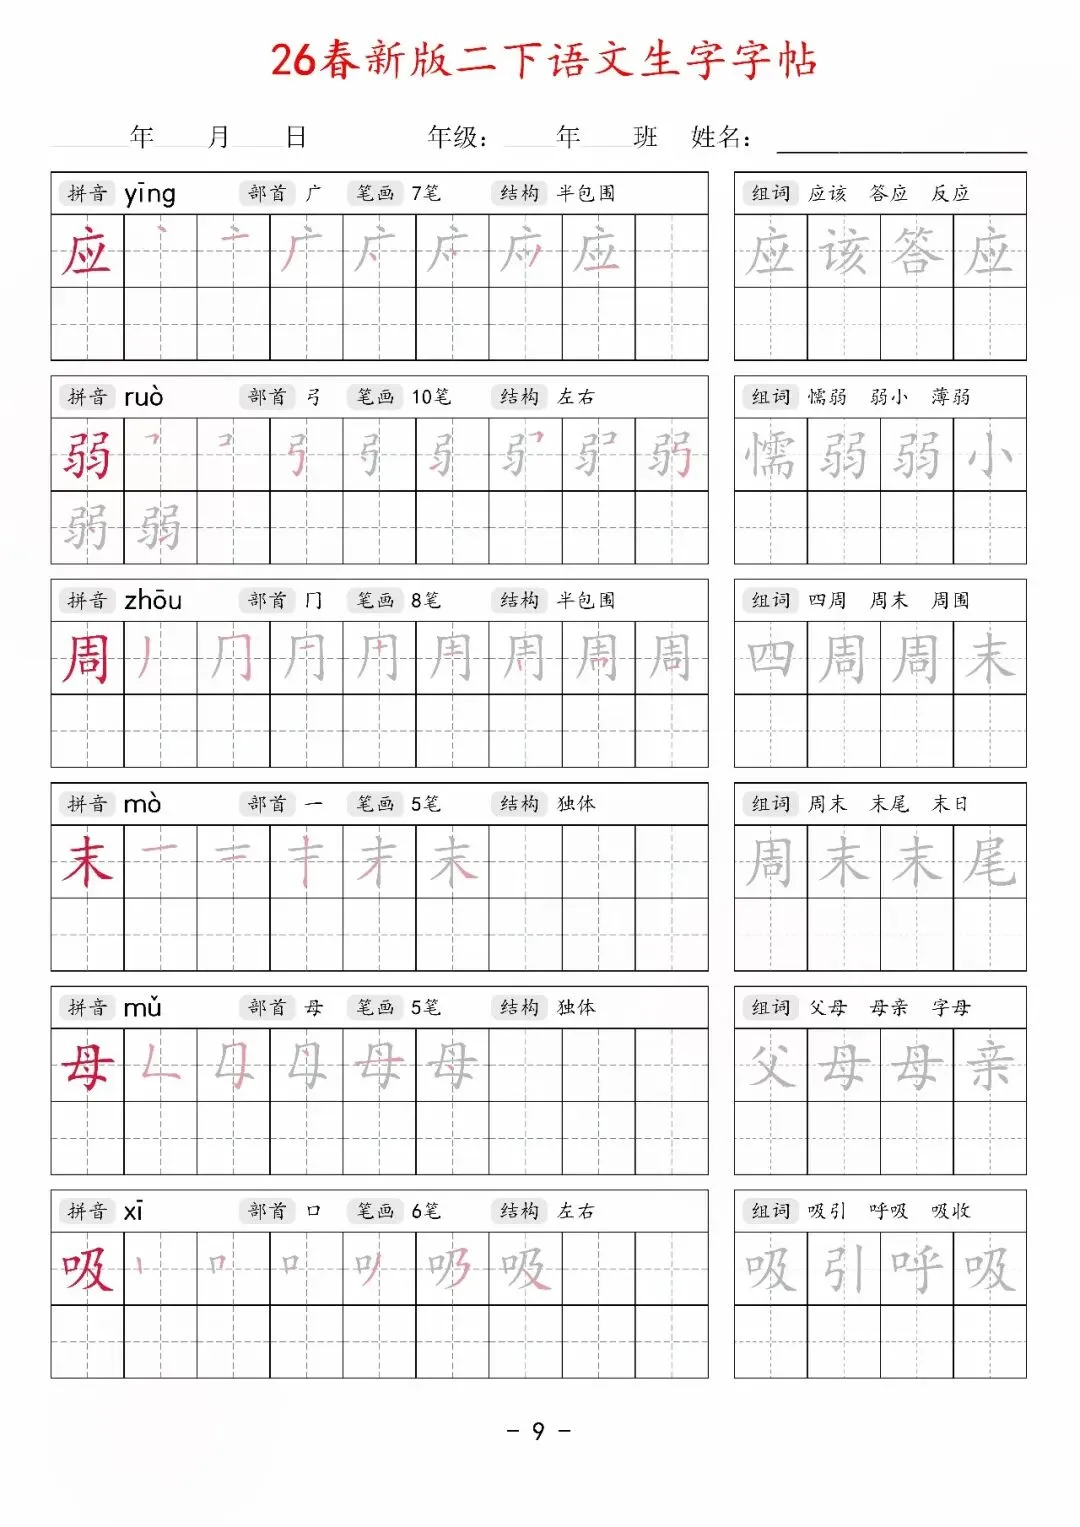 26春新版二下语文生字字帖
年 月 日 年级： 年 班 姓名：
拼音 yīng 部首 广 笔画 7笔 结构 半包围 组词 应该 答应 反应
应 丶 亠 广 应 应 该 答 应
拼音 ruò 部首 弓 笔画 10笔 结构 左右 组词 懦弱 弱小 薄弱
弱 弓 弱 懦 弱 弱 小
弱 弱
拼音 zhōu 部首 冂 笔画 8笔 结构 半包围 组词 四周 周末 周围
周 丿 冂 周 四 周 周 末
拼音 mò 部首 一 笔画 5笔 结构 独体 组词 周末 末尾 末日
末 一 二 末 周 末 末 尾
拼音 mǔ 部首 母 笔画 5笔 结构 独体 组词 父母 母亲 字母
母 母 父 母 母 亲
拼音 xī 部首 口 笔画 6笔 结构 左右 组词 吸引 呼吸 吸收
吸 丨 口 吸 吸 引 呼 吸
- 9 -